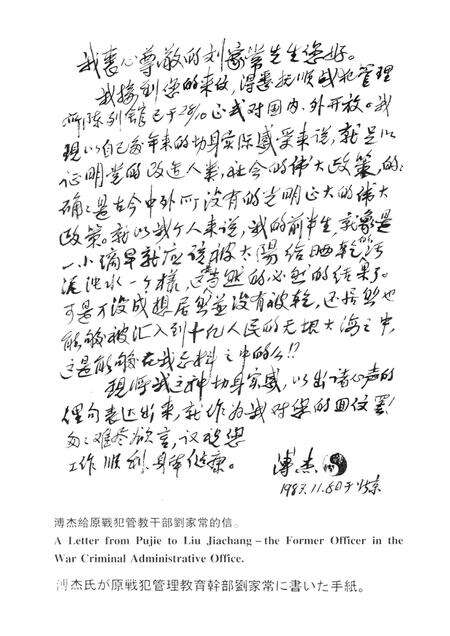 我衷心尊敬的刘家常先生您好。
我接到您的来信，得悉抚顺战犯管理
所陈列馆已于 正式对国内、外开放。我
现以自己多年来的切身实际感受来说，就足以
证明党的改造人类，社会的伟大政策，的
确是古今中外所没有的光明正大的伟大
政策。就以我个人来说，我的前半生，就像是
一小滴早就应该被太陽给晒乾的污
泥浊水一个樣，这当然的必然的结果了。
可是万没成想居然並没有被乾，还居然也
能够被汇入到十亿人民的 大海之中，
这是能够在我 料之中的么!?
现将我这种切身实感，以出诸心声的
俚句表达出来，就作为我对您的回信罢!
匆匆难尽欲言，谨祝您
工作顺利，身体健康。
溥杰
1987.11.8日于北京
溥杰給原戰犯管教干部劉家常的信。
A Letter from Pujie to Liu Jiachang – the Former Officer in the
War Criminal Administrative Office.
溥杰氏が原戦犯管理教育幹部劉家常に書いた手紙。